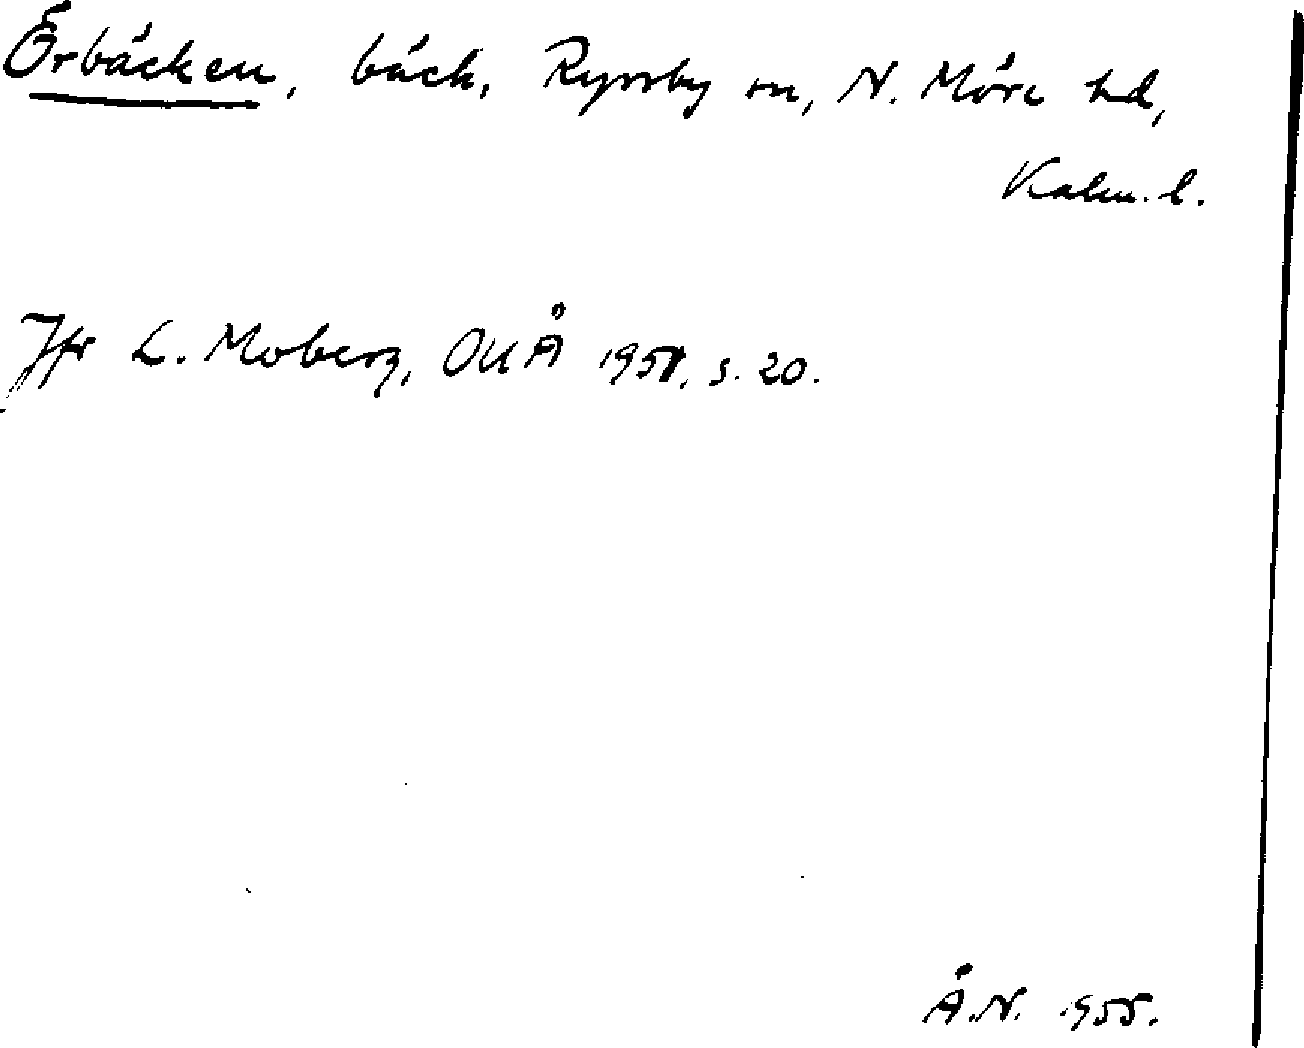 Örbäcken, bäck, Ryssby sn, N. Möre hd,
Kalm. l.
Jfr L. Moberg, OUÅ 1951, s. 20.
Å.N. 1955.